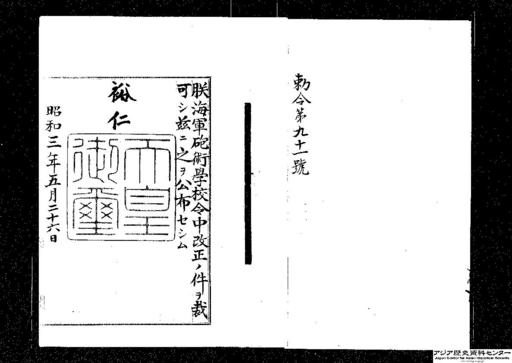 勅令第九十一號
朕海軍砲術學校令中改正ノ件ヲ裁
可シ茲ニ之ヲ公布セシム
裕仁
天皇
御璽
昭和三年五月二十六日
アジア歴史資料センター
Japan Center for Asian Historical Records